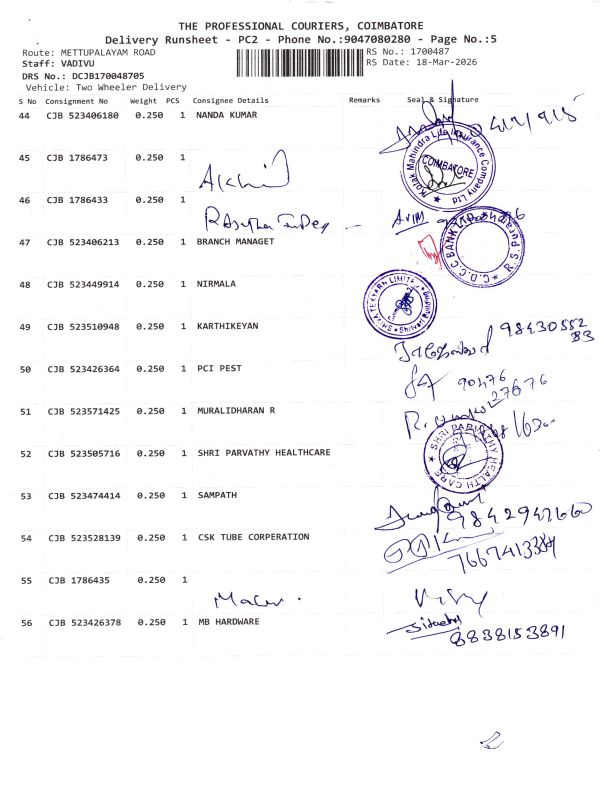 THE PROFESSIONAL COURIERS, COIMBATORE
Delivery Runsheet - PC2 - Phone No.:9047080280 - Page No.:5
Route: METTUPALAYAM ROAD RS No.: 1700487
Staff: VADIVU RS Date: 18-Mar-2026
DRS No.: DCJB170048705
Vehicle: Two Wheeler Delivery
S No Consignment No Weight PCS Consignee Details Remarks Seal & Signature
44 CJB 523406180 0.250 1 NANDA KUMAR
Kotak Mahindra Life Insurance Company Ltd
COIMBATORE
45 CJB 1786473 0.250 1
46 CJB 1786433 0.250 1
47 CJB 523406213 0.250 1 BRANCH MANAGET
C.D.C.C BANK
48 CJB 523449914 0.250 1 NIRMALA
49 CJB 523510948 0.250 1 KARTHIKEYAN
98430552
83
50 CJB 523426364 0.250 1 PCI PEST
90476
27676
51 CJB 523571425 0.250 1 MURALIDHARAN R
52 CJB 523505716 0.250 1 SHRI PARVATHY HEALTHCARE
SHRI PARVATHY HEALTH CARE
53 CJB 523474414 0.250 1 SAMPATH
9842947660
54 CJB 523528139 0.250 1 CSK TUBE CORPERATION
55 CJB 1786435 0.250 1
56 CJB 523426378 0.250 1 MB HARDWARE
8838153891